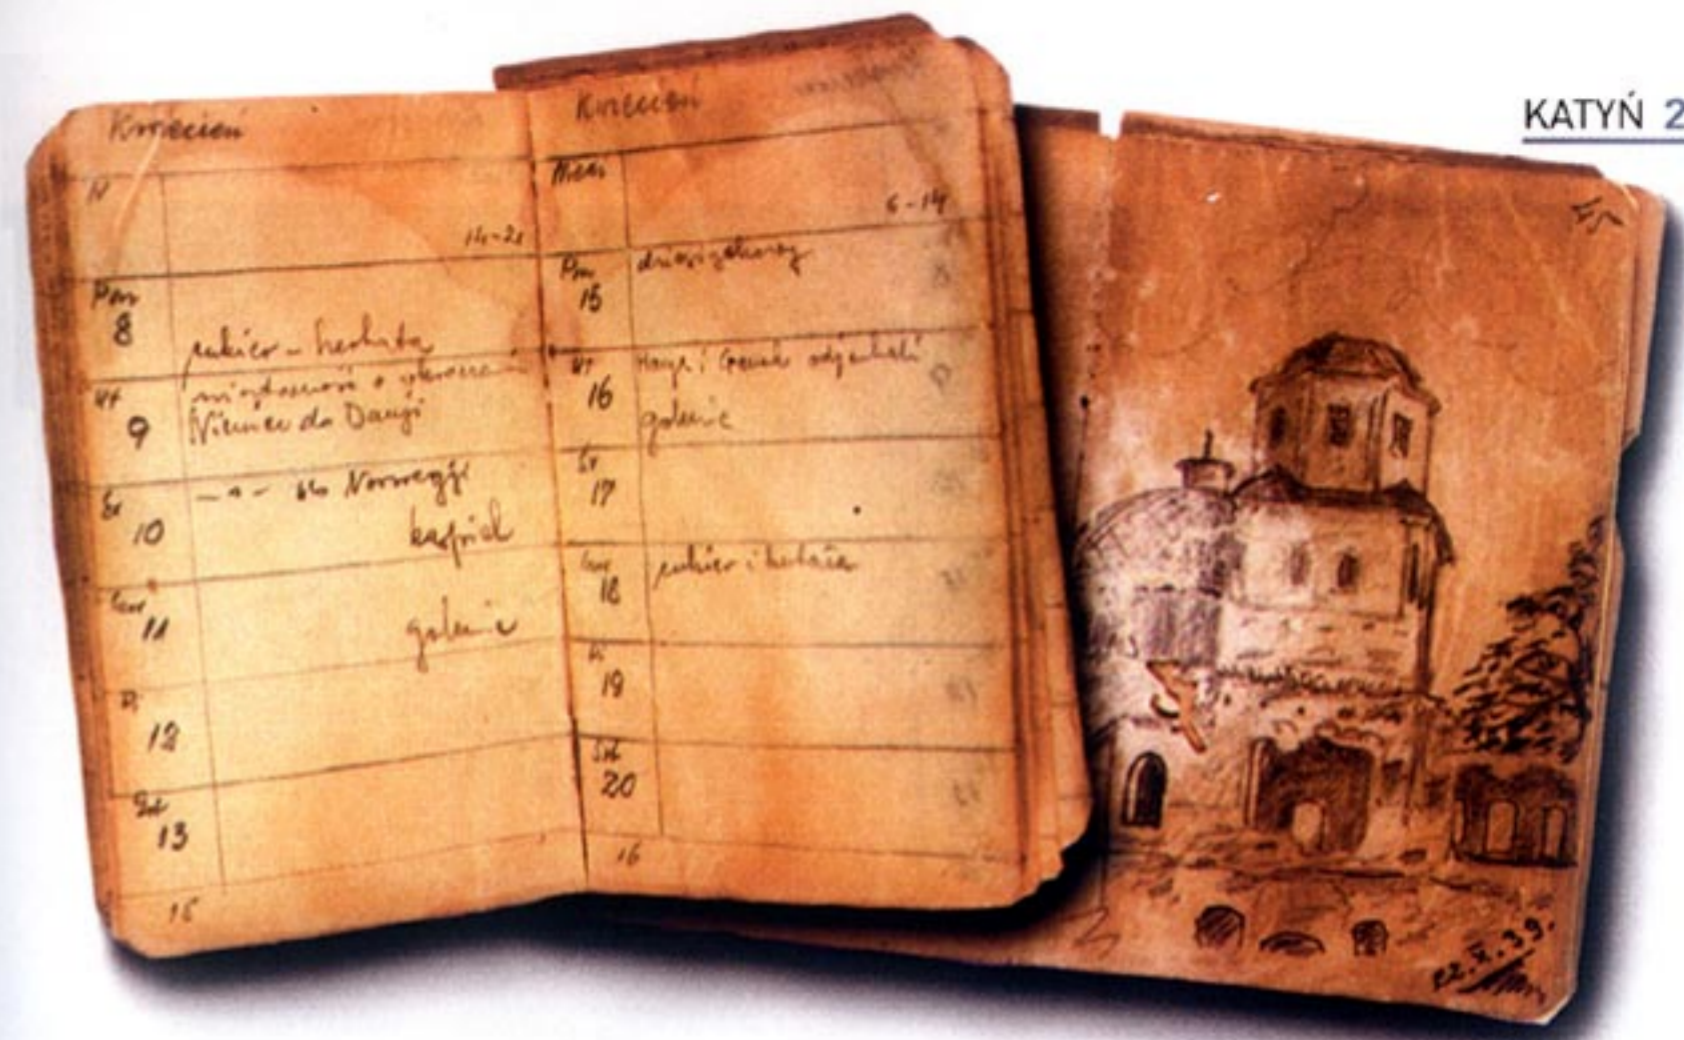 KATYŃ 2
Kwiecień
N
14-21
Pon
8
cukier - herbata
Wt
9
wiadomość o
Niemców do Danji
Śr
10
- " - do Norwegji
Czw
11
golenie
Pt
12
Sob
13
15
Kwiecień
Niedz
6-14
Pon
15
Wt
16
i odjechali
golenie
Śr
17
Czw
18
cukier i herbata
Pt
19
Sob
20
16
22.X.39.